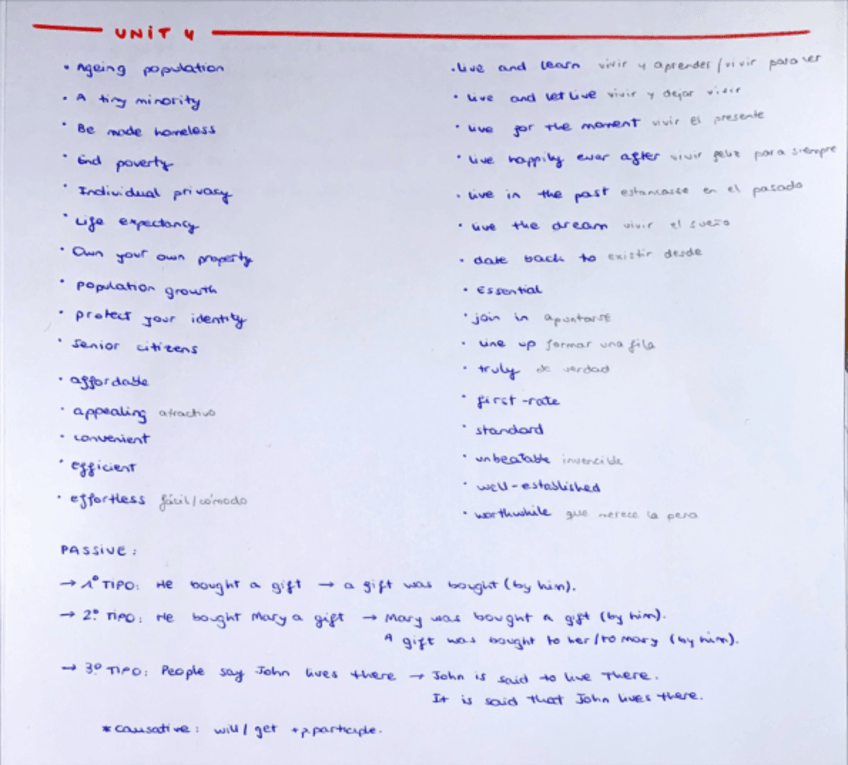 UNIT 4
• Ageing population
• A tiny minority
• Be made homeless
• End poverty
• Individual privacy
• Life expectancy
• Own your own property
• population growth
• protect your identity
• senior citizens
• affordable
• appealing atractivo
• convenient
• efficient
• effortless fácil/cómodo
• live and learn vivir y aprender/vivir para ver
• live and let live vivir y dejar vivir
• live for the moment vivir el presente
• live happily ever after vivir feliz para siempre
• live in the past estancarse en el pasado
• live the dream vivir el sueño
• date back to existir desde
• Essential
• join in apuntarse
• line up formar una fila
• truly de verdad
• first-rate
• standard
• unbeatable invencible
• well-established
• worthwhile que merece la pena
PASSIVE:
→ 1º TIPO: He bought a gift → a gift was bought (by him).
→ 2º TIPO: He bought Mary a gift → Mary was bought a gift (by him).
A gift was bought to her/to mary (by him).
→ 3º TIPO: People say John lives there → John is said to live there.
It is said that John lives there.
*causative: will/get + p.participle.